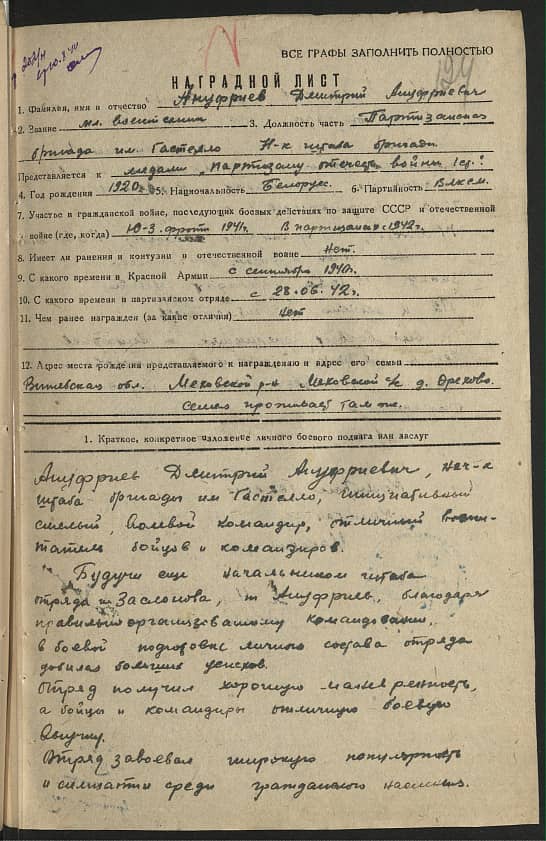 ВСЕ ГРАФЫ ЗАПОЛНИТЬ ПОЛНОСТЬЮ
НАГРАДНОЙ ЛИСТ
1. Фамилия, имя и отчество Ануфриев Дмитрий Ануфриевич
2. Звание мл. воентехник 3. Должность часть Партизанская
бригада им. Гастелло Н-к штаба бригады
Представляется к медали „Партизану отечеств. войны 1 ст."
4. Год рождения 1920г. 5. Национальность Белорус. 6. Партийность Влксм.
7. Участие в гражданской войне, последующих боевых действиях по защите СССР и отечественной
войне (где, когда) Ю-З. фронт 1941г. В партизанах с 1942г.
8. Имеет ли ранения и контузии в отечественной войне Нет.
9. С какого времени в Красной Армии с сентября 1940г.
10. С какого времени в партизанском отряде с 28.06.42г.
11. Чем ранее награжден (за какие отличия) нет
12. Адрес места рождения представляемого к награждению и адрес его семьи
Витебская обл. Меховской р-н Меховской с/с д. Орехово.
Семья проживает там же.
1. Краткое, конкретное изложение личного боевого подвига или заслуг
Ануфриев Дмитрий Ануфриевич, нач-к
штаба бригады им Гастелло, инициативный
смелый, волевой командир, отличный воспи-
татель бойцов и командиров.
Будучи еще начальником штаба
отряда им Заслонова, т Ануфриев, благодаря
правильно организованому командованию,
в боевой подготовке личного состава отряда
добился больших успехов.
Отряд получил хорошую маневренность,
а бойцы и командиры отличную боевую
выучку.
Отряд завоевал широкую популярность
и симпатии среди гражданского населения.